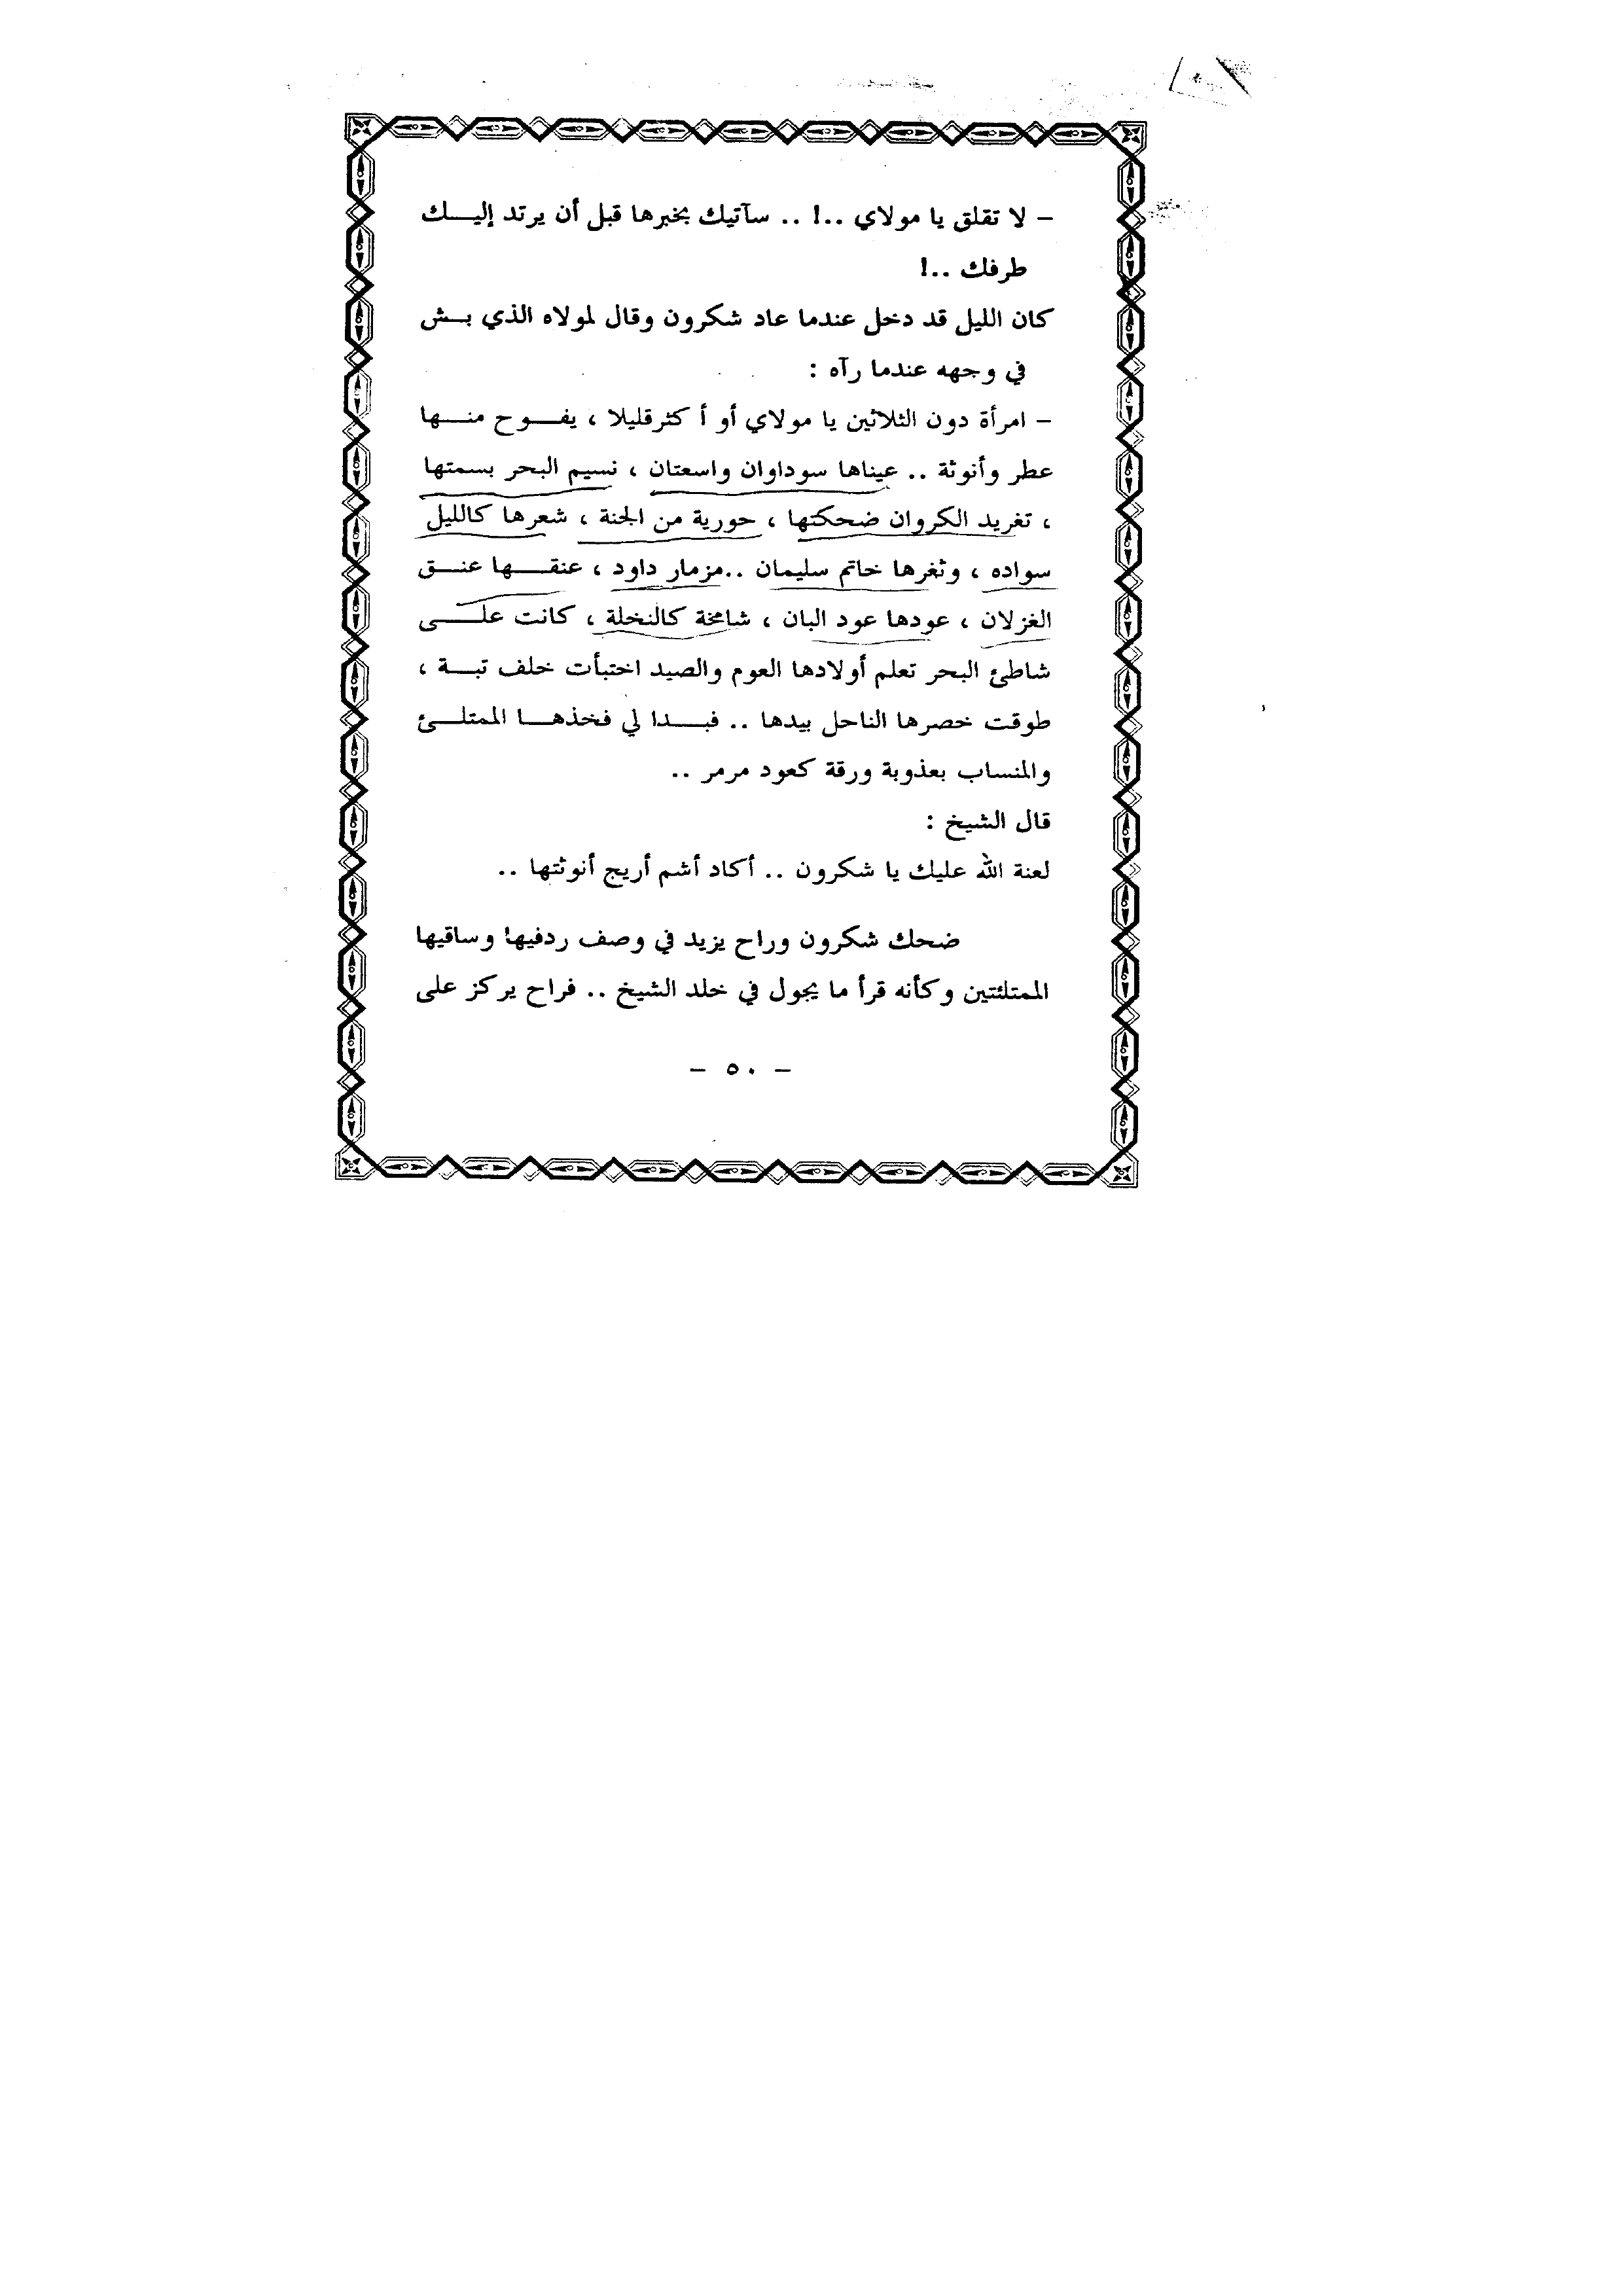 – لا تقلق يا مولاي ..! .. سآتيك بخبرها قبل أن يرتد إليــك
طرفك ..!
كان الليل قد دخل عندما عاد شكرون وقال لمولاه الذي بــش
في وجهه عندما رآه :
– امرأة دون الثلاثين يا مولاي أو أكثر قليلا ، يفــوح منــها
عطر وأنوثة .. عيناها سوداوان واسعتان ، نسيم البحر بسمتها
، تغريد الكروان ضحكتها ، حورية من الجنة ، شعرها كالليل
سواده ، وثغرها خاتم سليمان ..مزمار داود ، عنقــها عنــق
الغزلان ، عودها عود البان ، شامخة كالنخلة ، كانت علــى
شاطئ البحر تعلم أولادها العوم والصيد اختبأت خلف تبــة ،
طوقت خصرها الناحل بيدها .. فبــدا لي فخذهــا الممتلــئ
والمنساب بعذوبة ورقة كعود مرمر ..
قال الشيخ :
لعنة الله عليك يا شكرون .. أكاد أشم أريج أنوثتها ..
ضحك شكرون وراح يزيد في وصف ردفيها وساقيها
الممتلئتين وكأنه قرأ ما يجول في خلد الشيخ .. فراح يركز على
– ٥٠ –